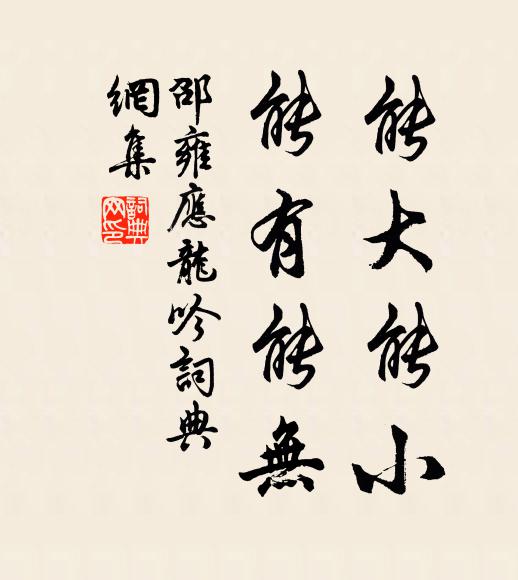 能大能小
能有能無
邵雍應龍吟詞典
網集
詞典
网印